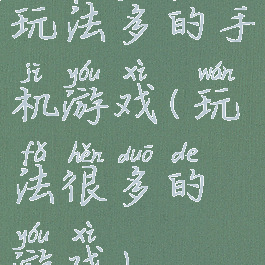 玩法多的手
jī yóu xì wán
机游戏(玩
fǎ hěn duō de
法很多的
yóu xì
游戏)